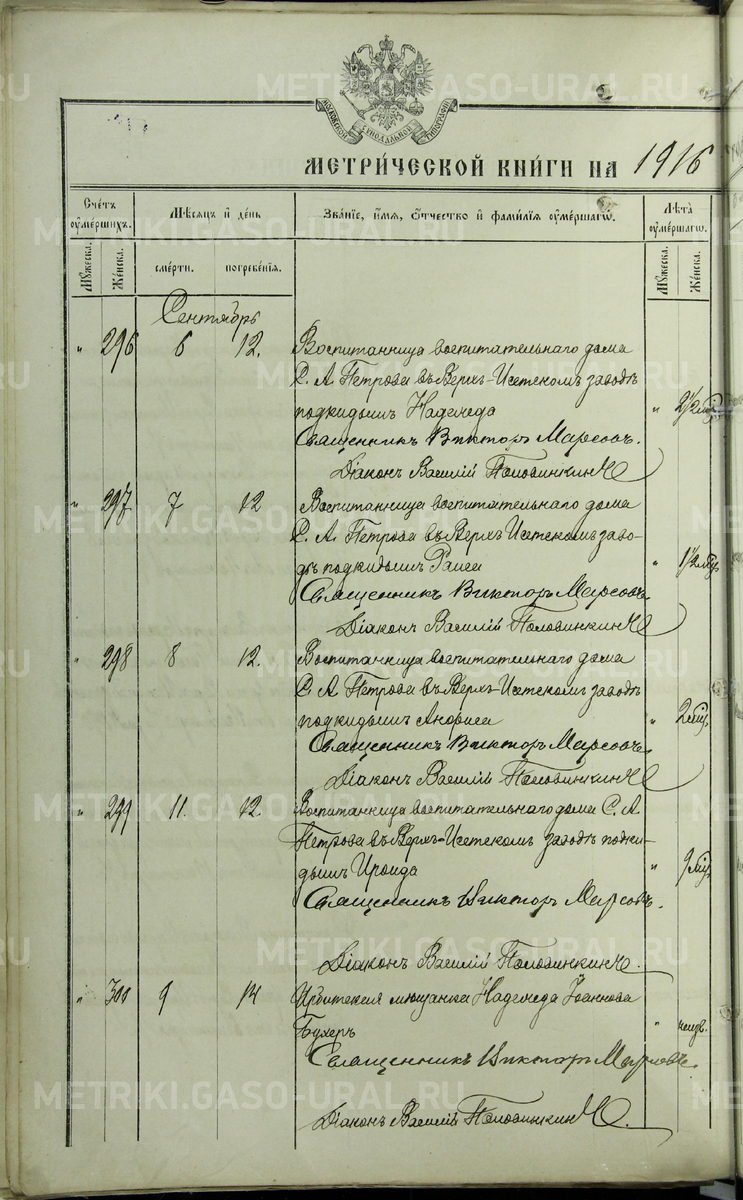 МОСКОВСКОЙ СѴНОДАЛЬНОЙ ТИПОГРАФІИ
МЕТРИ́ЧЕСКОЙ КНИ́ГИ НА 1916
Сче́тъ ᲂу҆ме́ршихъ.
Мѣ́сяцъ и҆ де́нь
Зва́нїе, и҆́мя, ѻ҆́тчество и҆ фами́лїя ᲂу҆ме́ршагѡ.
Лѣ́та ᲂу҆ме́ршагѡ.
Мꙋ́жеска.
Же́нска.
сме́рти.
погребе́нїя.
Мꙋ́жеска.
Же́нска.
Сентябрь
" 296 6 12. Воспитанница воспитательнаго дома
С. А. Петрова въ Верхъ-Исетскомъ заводѣ
подкидышъ Надежда " 2½ мѣс.
Священникъ Викторъ Марсовъ.
Діаконъ Василій Половинкинъ
" 297 7 12 Воспитанница воспитательнаго дома
С. А. Петрова въ Верхъ Исетскомъ заво-
дѣ подкидышъ Раиса " 1½ мѣс.
Священникъ Викторъ Марсовъ
Діаконъ Василій Половинкинъ
" 298 8 12. Воспитанница воспитательнаго дома
С. А. Петрова въ Верхъ-Исетскомъ заводѣ
подкидышъ Анфиса " 2 мѣс.
Священникъ Викторъ Марсовъ
Діаконъ Василій Половинкинъ
" 299 11. 12. Воспитанница воспитательнаго дома С. А.
Петрова въ Верхъ-Исетскомъ заводѣ подки-
дышъ Ираида " 9 мѣс.
Священникъ Викторъ Марсовъ.
Діаконъ Василій Половинкинъ.
" 300 9 14 Ирбитская мѣщанка Надежда Іоаннова
Бухеръ " неизв.
Священникъ Викторъ Марсовъ.
Діаконъ Василій Половинкинъ.
METRIKI.GASO-URAL.RU